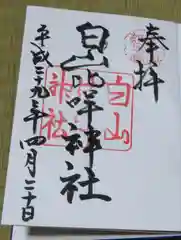 奉拝
白山比咩神社
白山
神社
平成二十九年四月二十日